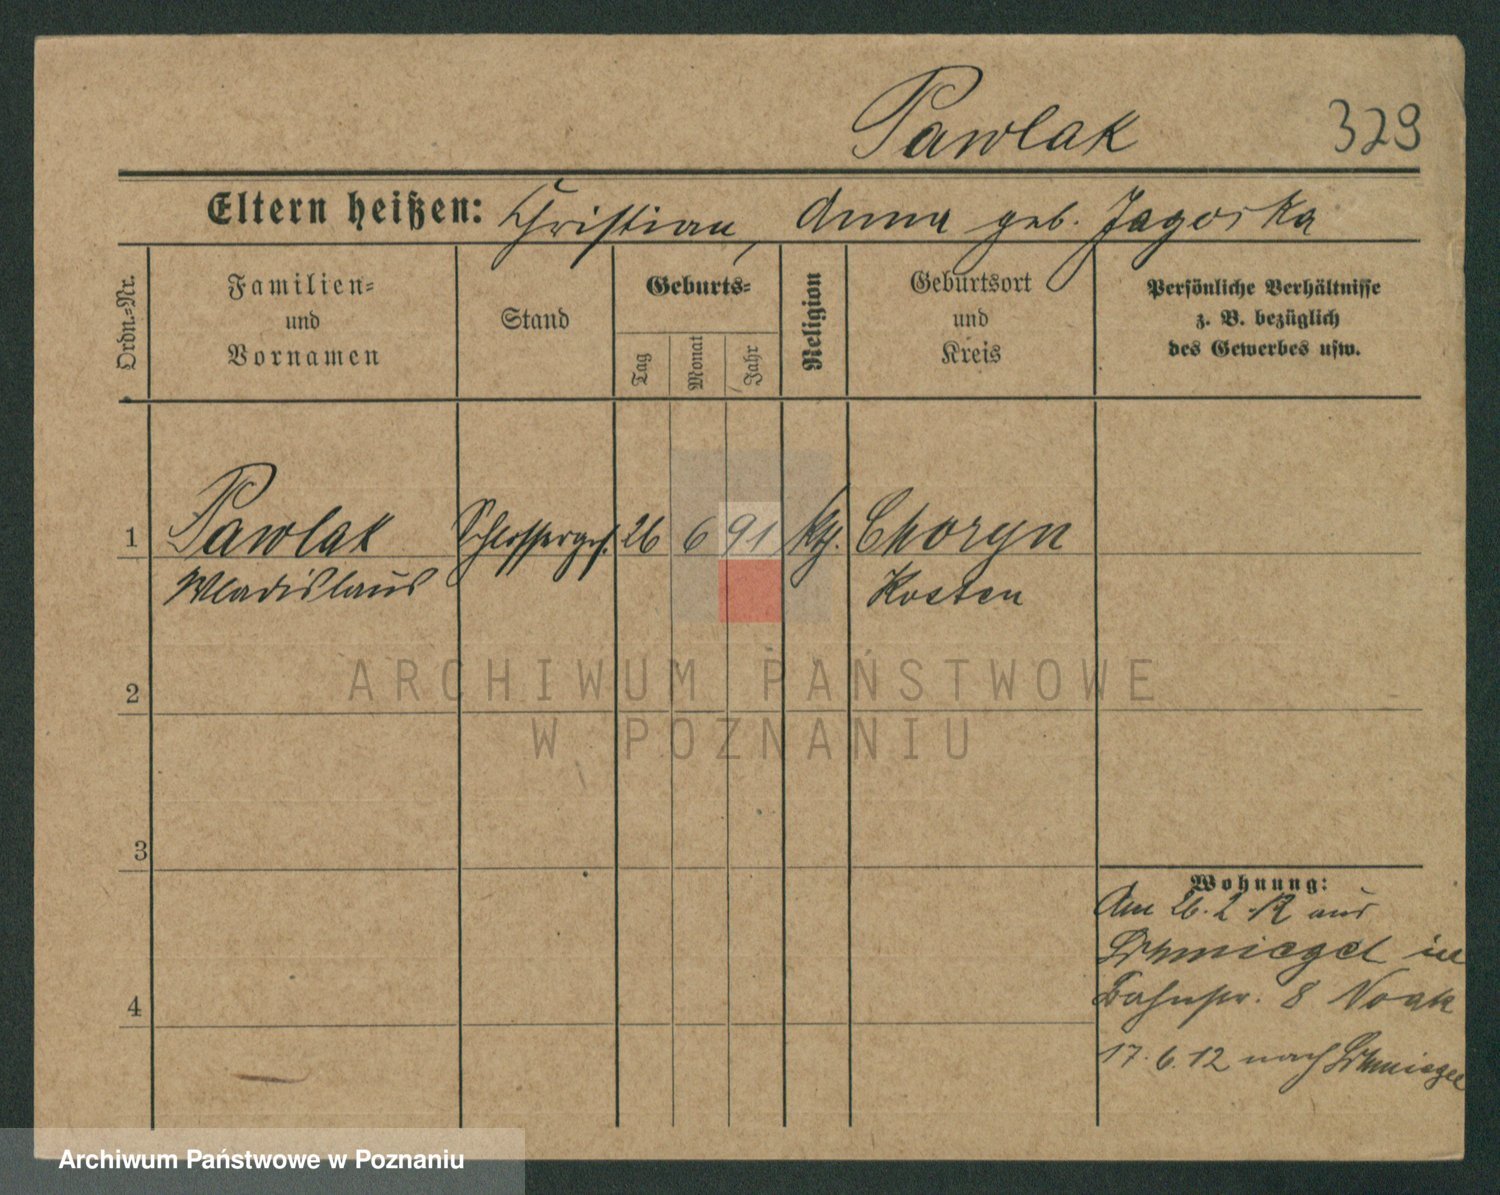 Pawlak 329
Eltern heißen: Christian, Anna geb. Jagorska
Ordn.-Nr.
Familien-
und
Vornamen
Stand
Geburts-
Tag
Monat
Jahr
Religion
Geburtsort
und
Kreis
Persönliche Verhältnisse
z. B. bezüglich
des Gewerbes usw.
1 Pawlak Schlosserges. 26 6 91 kth. Choryn
Wladislaus Kosten
ARCHIWUM PAŃSTWOWE
W POZNANIU
2
3
4
Wohnung:
Am 26. 2. 12 aus
Schmiegel in
Bahnstr. 8 Noak
17. 6. 12 nach Schmiegel
Archiwum Państwowe w Poznaniu